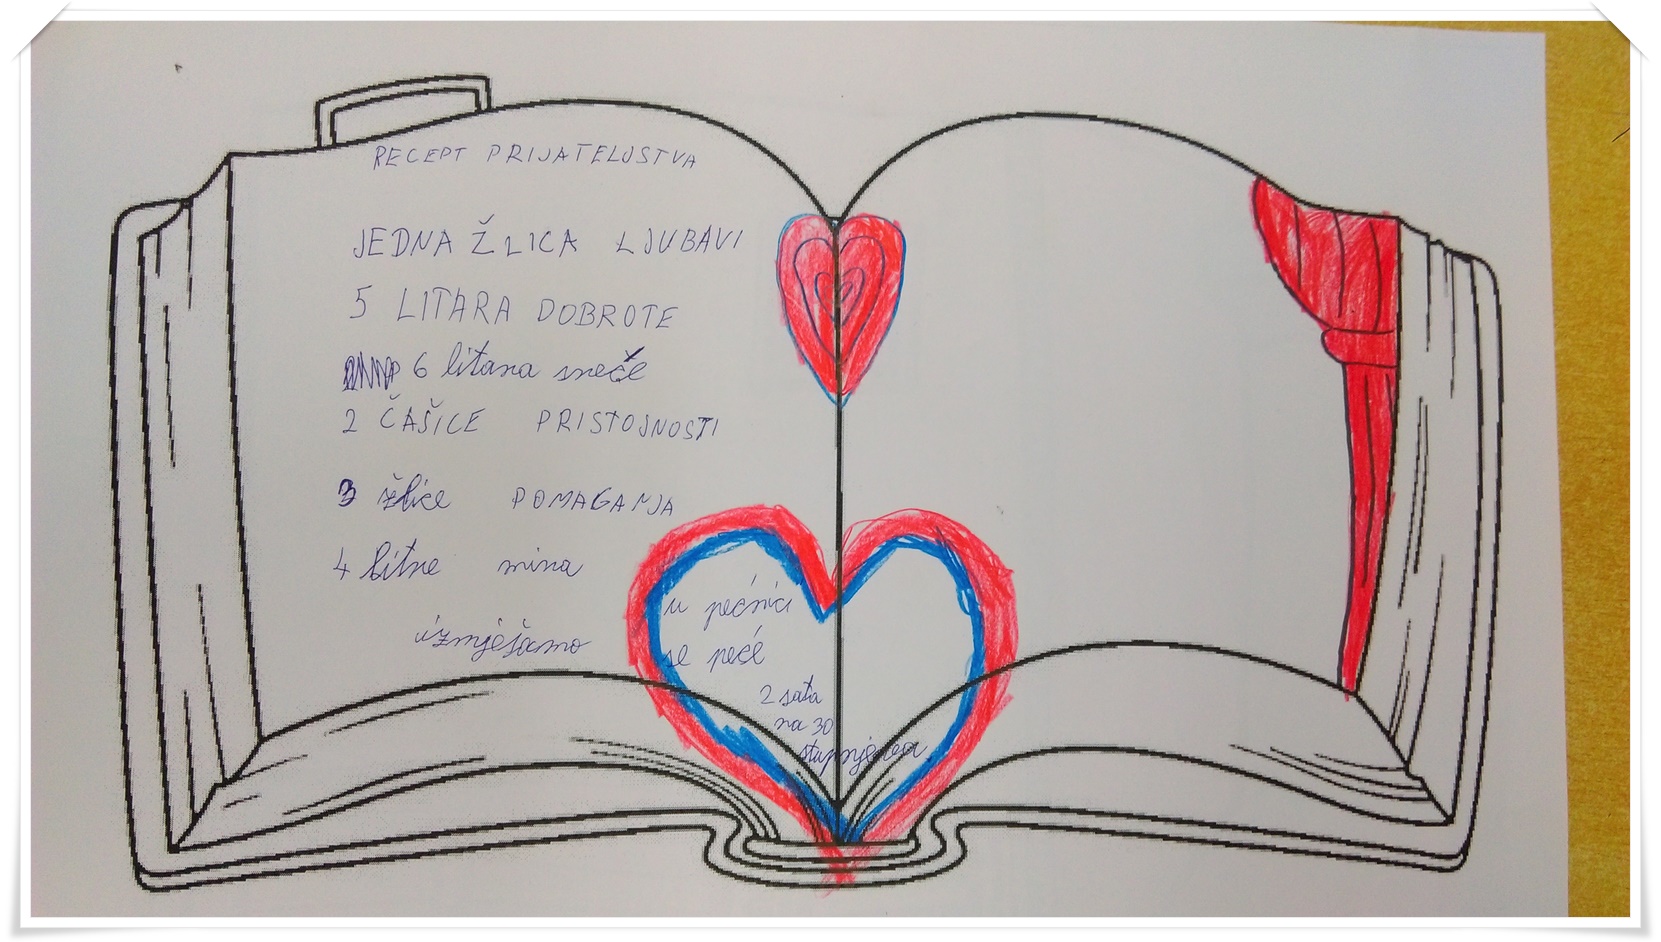 RECEPT PRIJATELJSTVA
JEDNA ŽLICA LJUBAVI
5 LITARA DOBROTE
6 litara sreče
2 ČAŠICE PRISTOJNOSTI
3 žlice POMAGANJA
4 litre mira
izmješamo
u pećnici
se peće
2 sata
na 30
stupnjeva